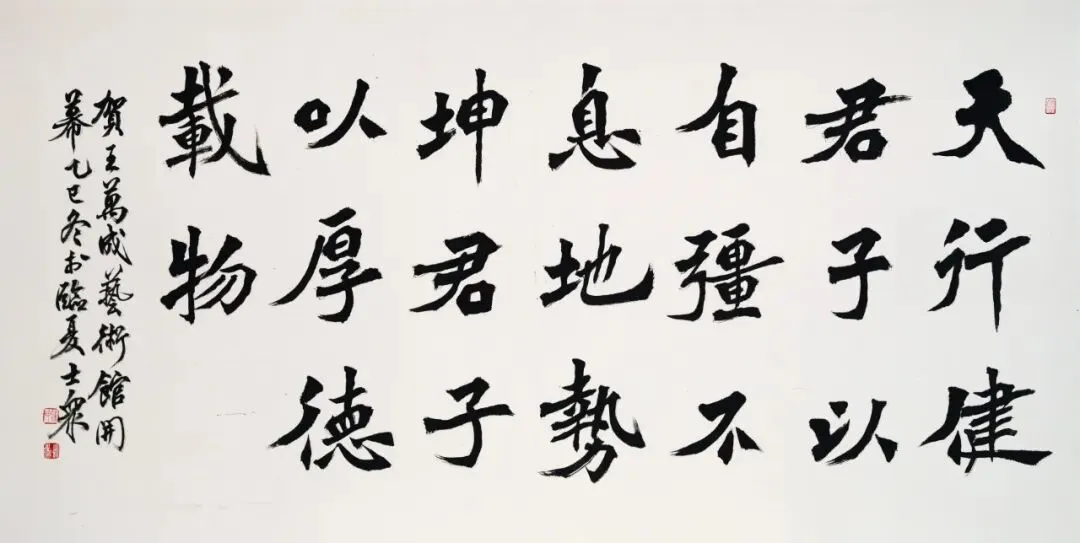 天行健
君子以
自彊不
息地勢
坤君子
以厚德
載物
賀王萬成藝術館開
幕乙巳冬於臨夏士眾